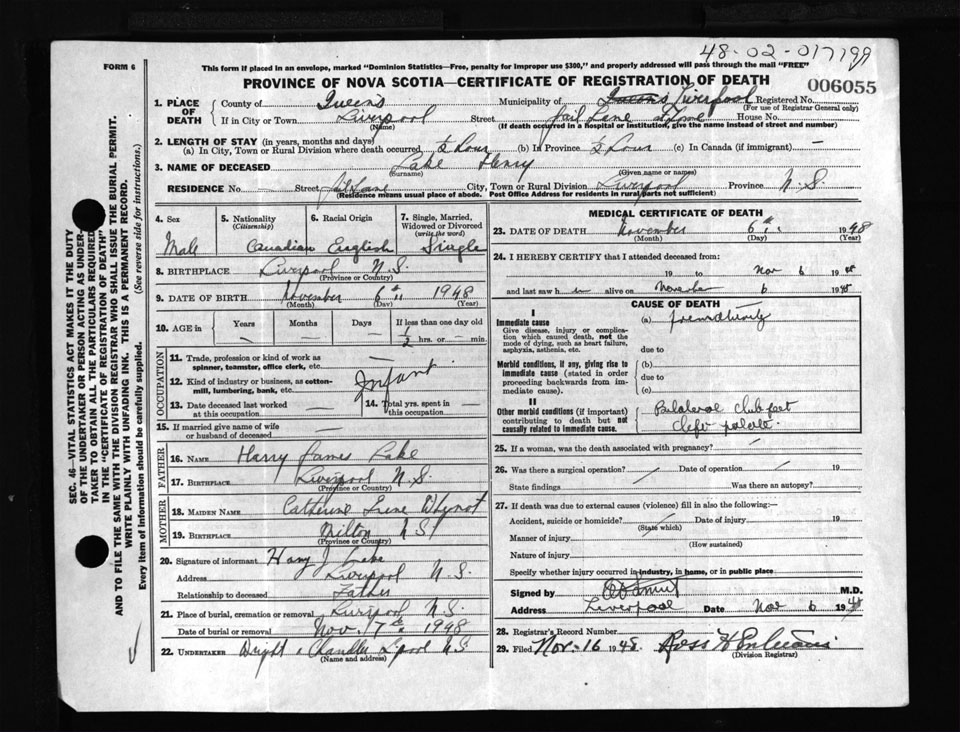 48-02-017199
FORM 6
This form if placed in an envelope, marked "Dominion Statistics—Free, penalty for improper use $300," and properly addressed will pass through the mail "FREE"
PROVINCE OF NOVA SCOTIA—CERTIFICATE OF REGISTRATION OF DEATH
006055
SEC. 46—VITAL STATISTICS ACT MAKES IT THE DUTY
OF THE UNDERTAKER OR PERSON ACTING AS UNDER-
TAKER TO OBTAIN ALL THE PARTICULARS REQUIRED
IN THE "CERTIFICATE OF REGISTRATION OF DEATH"
AND TO FILE THE SAME WITH THE DIVISION REGISTRAR WHO SHALL ISSUE THE BURIAL PERMIT.
WRITE PLAINLY WITH UNFADING INK. THIS IS A PERMANENT RECORD.
Every item of information should be carefully supplied. (See reverse side for instructions.)
1. PLACE OF DEATH County of Queens Municipality of Queens Liverpool Registered No.
(For use of Registrar General only)
If in City or Town Liverpool Street Jail Lane Home House No.
(Name) (If death occurred in a hospital or institution, give the name instead of street and number)
2. LENGTH OF STAY (in years, months and days)
(a) In City, Town or Rural Division where death occurred ½ hour (b) In Province ½ hour (c) In Canada (if immigrant) —
3. NAME OF DECEASED Lake Henry
(Surname) (Given name or names)
RESIDENCE No. — Street Jail Lane City, Town or Rural Division Liverpool Province N.S.
(Residence means usual place of abode. Post Office Address for residents in rural parts not sufficient)
4. Sex 5. Nationality (Citizenship) 6. Racial Origin 7. Single, Married, Widowed or Divorced (write the word)
Male Canadian English Single
8. BIRTHPLACE Liverpool N.S.
(Province or Country)
9. DATE OF BIRTH November 6th 1948
(Month) (Day) (Year)
10. AGE in Years Months Days If less than one day old
— — — ½ hrs. or — min.
OCCUPATION
11. Trade, profession or kind of work as spinner, teamster, office clerk, etc. —
12. Kind of industry or business, as cotton-mill, lumbering, bank, etc. Infant
13. Date deceased last worked at this occupation — 14. Total yrs. spent in this occupation —
15. If married give name of wife or husband of deceased —
FATHER
16. NAME Harry James Lake
17. BIRTHPLACE Liverpool N.S.
(Province or Country)
MOTHER
18. MAIDEN NAME Catherine Irene Whynot
19. BIRTHPLACE Milton N.S.
(Province or Country)
20. Signature of informant Harry J. Lake
Address Liverpool N.S.
Relationship to deceased Father
21. Place of burial, cremation or removal Liverpool N.S.
Date of burial or removal Nov. 7th 1948
22. UNDERTAKER Wright & Chandler L'pool N.S.
(Name and address)
MEDICAL CERTIFICATE OF DEATH
23. DATE OF DEATH November 6th 1948
(Month) (Day) (Year)
24. I HEREBY CERTIFY that I attended deceased from:
19 to Nov 6 1948
and last saw h im alive on November 6 1948
CAUSE OF DEATH
I
Immediate cause (a) prematurity
Give disease, injury or complication which caused death, not the mode of dying, such as heart failure, asphyxia, asthenia, etc.
due to
Morbid conditions, if any, giving rise to immediate cause (stated in order proceeding backwards from immediate cause) (b)
due to
(c)
II
Other morbid conditions (if important) contributing to death but not causally related to immediate cause. Bilateral club feet
cleft palate.
25. If a woman, was the death associated with pregnancy?
26. Was there a surgical operation? Date of operation 19
State findings Was there an autopsy?
27. If death was due to external causes (violence) fill in also the following:
Accident, suicide or homicide? Date of injury 19
(State which)
Manner of injury
(How sustained)
Nature of injury
Specify whether injury occurred in industry, in home, or in public place
Signed by M.D.
Address Liverpool Date Nov 6 1948
28. Registrar's Record Number
29. Filed Nov. 16 1948. Ross H
(Division Registrar)